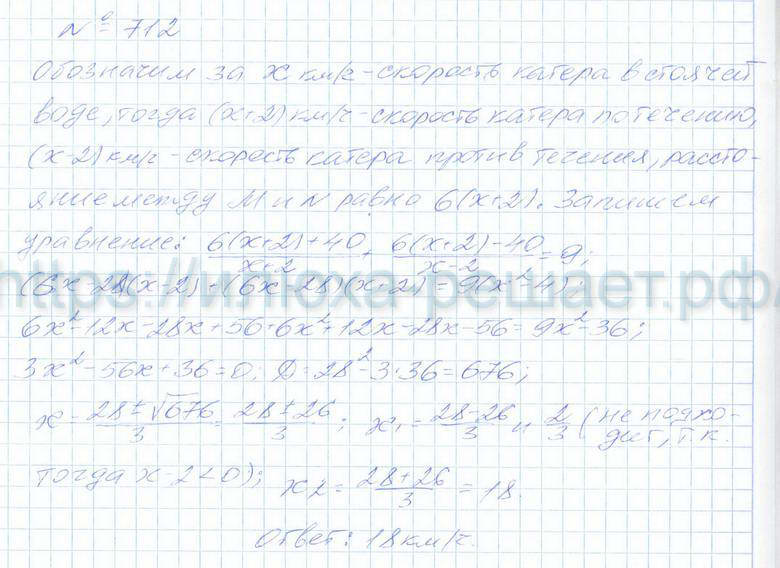 № 712
Обозначим за x км/ч - скорость катера в стоячей
воде, тогда (x+2) км/ч - скорость катера по течению,
(x-2) км/ч - скорость катера против течения, рассто-
яние между M и N равно 6(x+2). Запишем
уравнение: 6(x+2)+40/x+2 + 6(x+2)-40/x-2 = 9;
https://илюха-решает.рф/
(6x-28)(x-2)+(6x-28)(x+2)=9(x²-4);
6x²-12x-28x+56+6x²+12x-28x-56=9x²-36;
3x²-56x+36=0; D=28²-3·36=676;
x=28±√676/3=28±26/3; x₁=28-26/3 = 2/3 (не подхо-
дит, т.к.
тогда x-2<0); x₂=28+26/3=18.
Ответ: 18 км/ч.